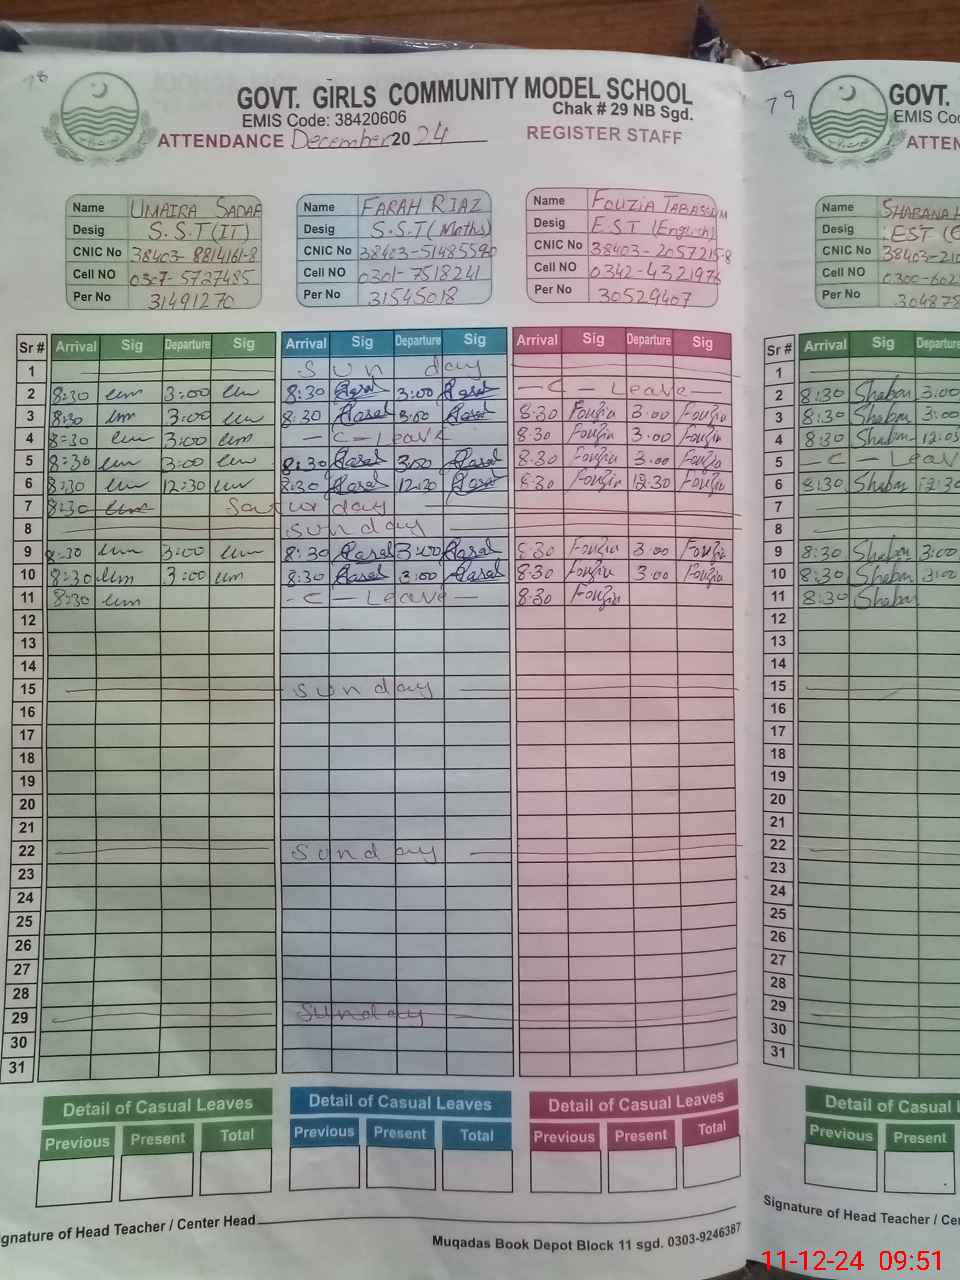 78
GOVT. GIRLS COMMUNITY MODEL SCHOOL
EMIS Code: 38420606 Chak # 29 NB Sgd.
ATTENDANCE December 2024 REGISTER STAFF
Name UMAIRA SADAF
Desig S.S.T(IT)
CNIC No 38403-8814161-8
Cell NO 0307-5727485
Per No 31491270
Name FARAH RIAZ
Desig S.S.T(Maths)
CNIC No 38403-51485590
Cell NO 0301-7518241
Per No 31545018
Name FOUZIA TABASSUM
Desig E.S.T (English)
CNIC No 38403-2057215-8
Cell NO 0342-4321976
Per No 30529407
Sr # Arrival Sig Departure Sig Arrival Sig Departure Sig Arrival Sig Departure Sig
1 Sunday
2 8:30 um 3:00 um 8:30 3:00 -C-Leave-
3 8:30 um 3:00 um 8:30 3:00 8:30 Fouzia 3:00 Fouzia
4 8:30 um 3:00 um -C-Leave 8:30 Fouzia 3:00 Fouzia
5 8:30 um 3:00 um 8:30 3:00 8:30 Fouzia 3:00 Fouzia
6 8:30 um 12:30 um 8:30 12:30 8:30 Fouzia 12:30 Fouzia
7 8:30 um Saturday
8 Sunday
9 8:30 um 3:00 um 8:30 3:00 8:30 Fouzia 3:00 Fouzia
10 8:30 um 3:00 um 8:30 3:00 8:30 Fouzia 3:00 Fouzia
11 8:30 um -C-Leave- 8:30 Fouzia
12
13
14
15 Sunday
16
17
18
19
20
21
22 Sunday
23
24
25
26
27
28
29 Sunday
30
31
Detail of Casual Leaves Detail of Casual Leaves Detail of Casual Leaves
Previous Present Total Previous Present Total Previous Present Total
gnature of Head Teacher / Center Head
Muqadas Book Depot Block 11 sgd. 0303-9246387
79
GOVT.
EMIS Co
ATTEN
Name SHABANA
Desig EST
CNIC No 38403-210
Cell NO 0300-602
Per No 30487
Sr # Arrival Sig Departure
1
2 8:30 Shaban 3:00
3 8:30 Shaban 3:00
4 8:30 Shaban 12:05
5 -C-Leav
6 8:30 Shaban 12:30
7
8
9 8:30 Shaban 3:00
10 8:30 Shaban 3:00
11 8:30 Shaban
12
13
14
15
16
17
18
19
20
21
22
23
24
25
26
27
28
29
30
31
Detail of Casual L
Previous Present
Signature of Head Teacher / Cen
11-12-24 09:51